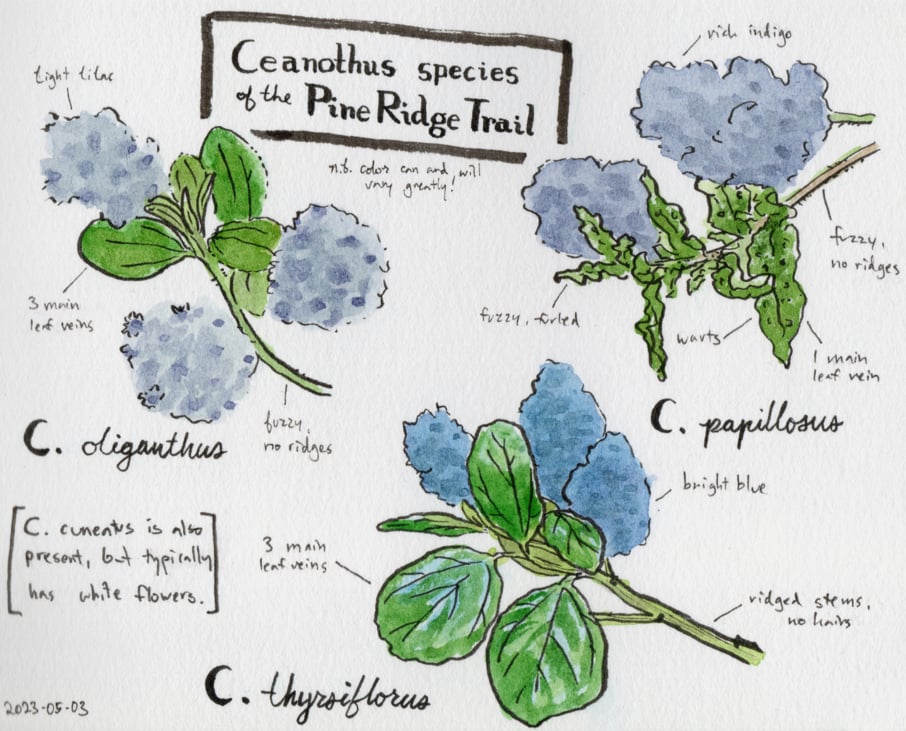 Ceanothus species
of the Pine Ridge Trail
n.b. color can and will
vary greatly!
light lilac
3 main
leaf veins
fuzzy,
no ridges
C. oliganthus
rich indigo
fuzzy,
no ridges
fuzzy, furled
warts
1 main
leaf vein
C. papillosus
bright blue
3 main
leaf veins
ridged stems,
no hairs
C. thyrsiflorus
[C. cuneatus is also
present, but typically
has white flowers.]
2023-05-03